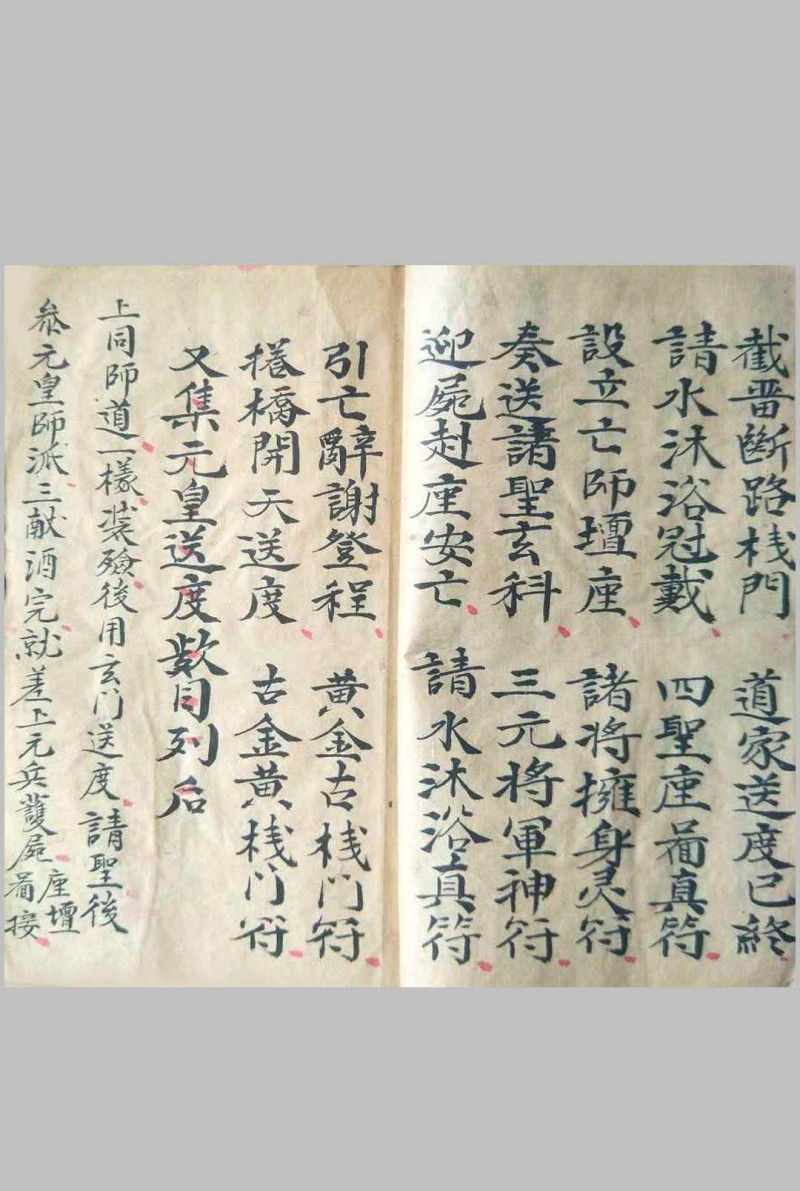 截晋斷路栈門　道家送度已終
請水沐浴冠戴　四聖座啚真符
設立亡師壇座　諸将擁身灵符
奏送諸聖玄科　三元將軍神符
迎屍赴座安亡　請水沐浴真符
引亡辭謝登程　黄金古栈门符
捲橋開天送度　古金黄栈门符
又集元皇送度欵目列后
上同師道一樣装殮後用玄门送度　請聖後
叅元皇師派三献酒完就差上元兵護屍座壇啚接